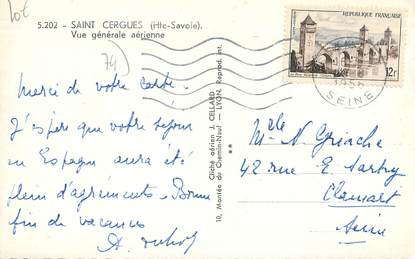 5.202 - SAINT CERGUES (Hte-Savoie).
Vue générale aérienne
74
Merci de votre carte.
J'espère que votre séjour
en Espagne aura été
plein d'agréments. Bonne
fin de vacances
A.
Cliché aérien J. CELLARD
10, Montée du Chemin-Neuf — LYON. Reprod. int.
**
REPUBLIQUE FRANÇAISE
12F
SEINE
Mlle N. Griache
42 rue E. Sartry
Clamart
Seine